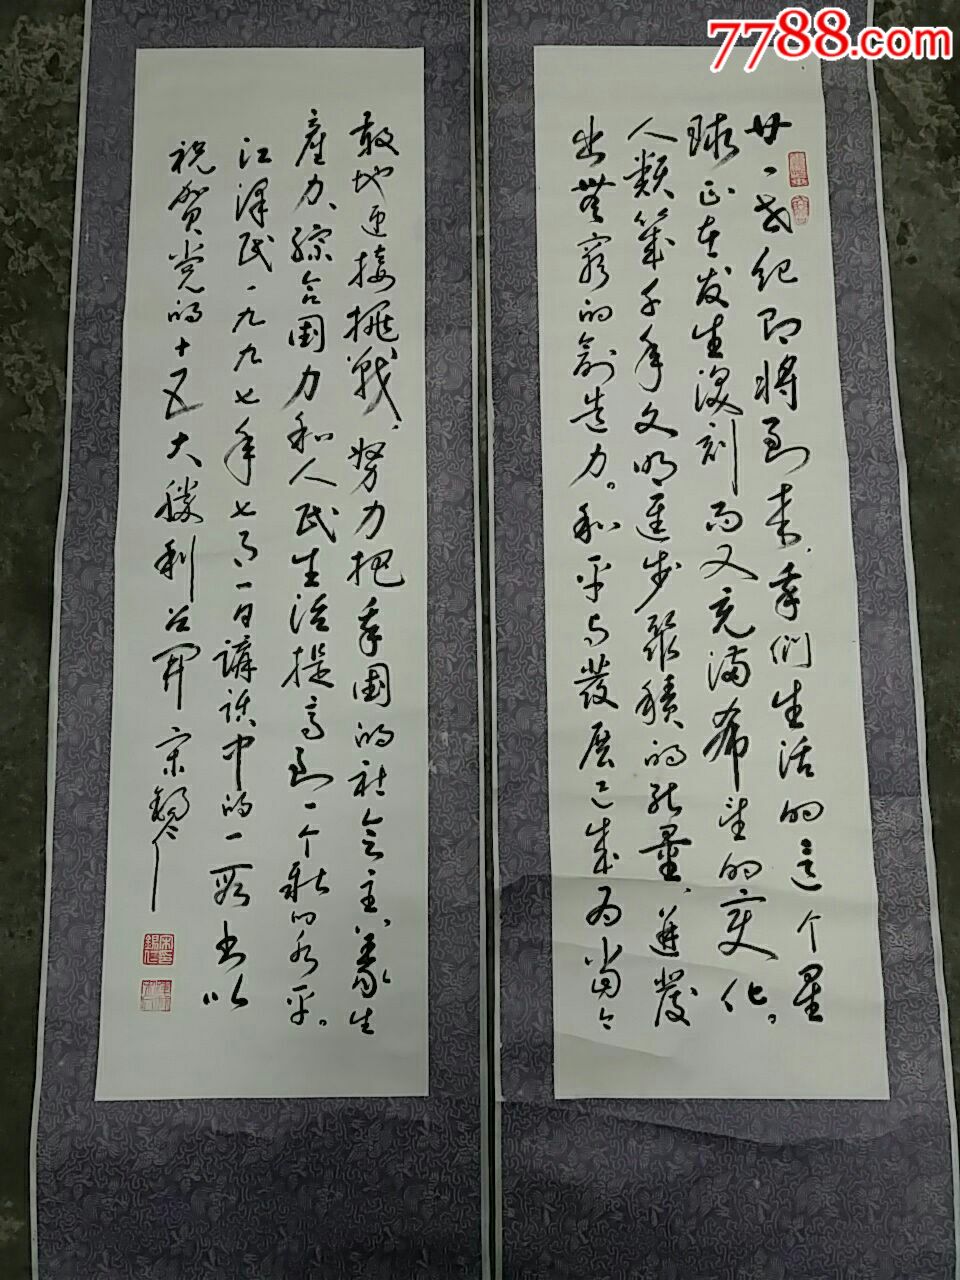 7788.com
廿一世纪即将到来，我们生活的这个星
球正在发生深刻而又充满希望的变化。
人類几千年文明進步聚積的能量、迸發
出無窮的創造力。和平与發展已成为当今
敢地迎接挑戰，努力把我國的社会主义生
産力、綜合國力和人民生活提高到一个新的水平。
江澤民一九九七年七月一日講話中的一段书以
祝贺党的十五大勝利召開 宋錫仁